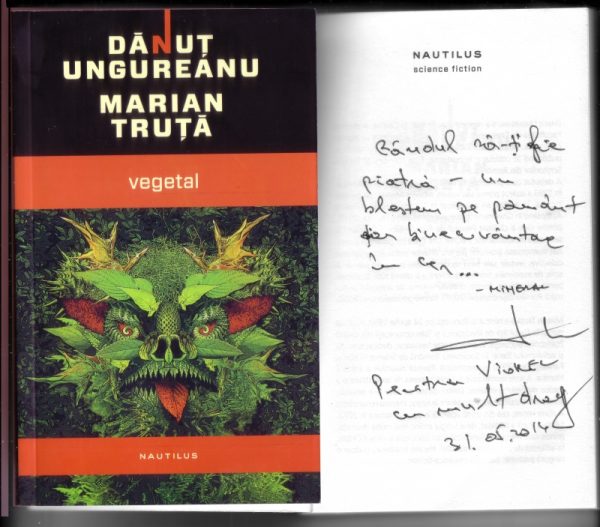 DĂNUȚ
UNGUREANU
MARIAN
TRUȚĂ
vegetal
NAUTILUS
NAUTILUS
science fiction
Gândul să-ți fie
piatră – un
blestem pe pământ
binecuvântare
în cer...
- MINERAL
Pentru VIOREL
cu mult drag
31.05.2014